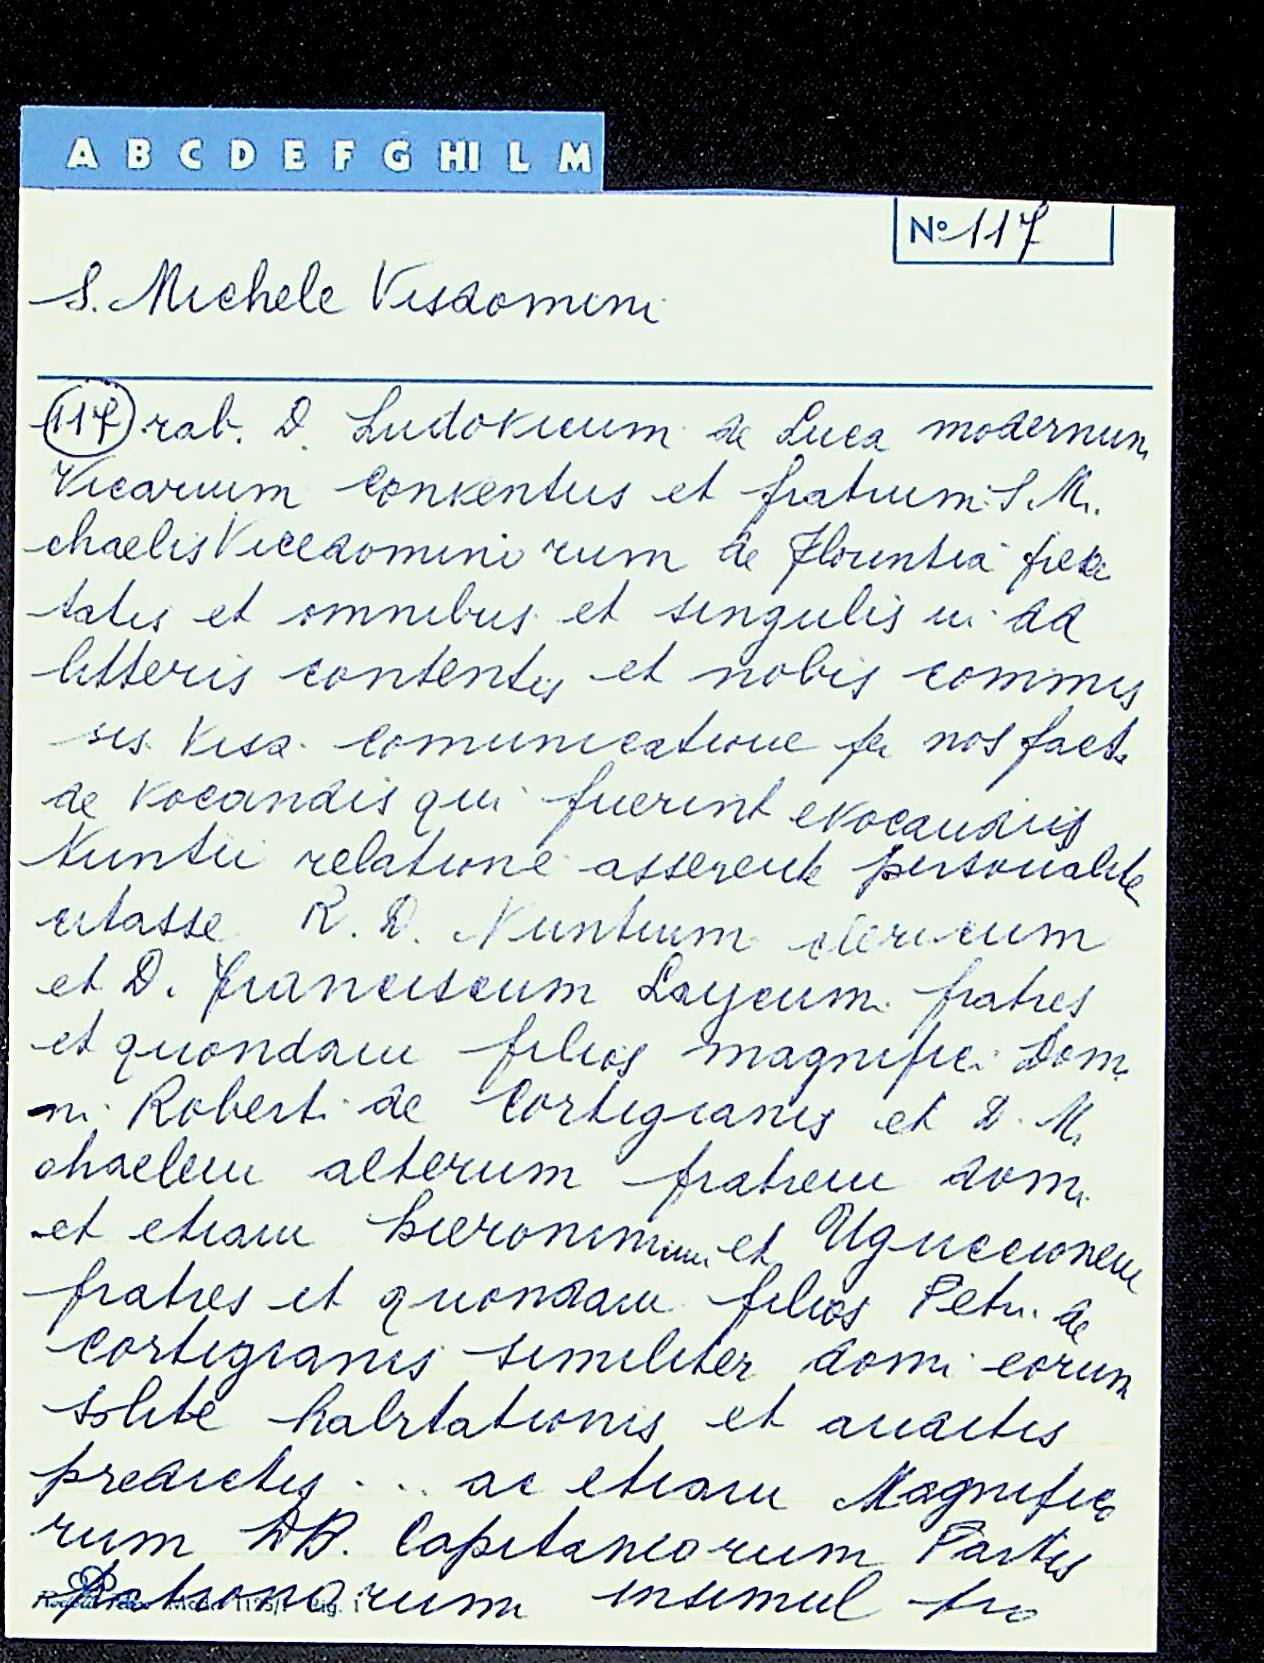 A B C D E F G HI L M
Nº 117
S. Michele Visdomini
117 rab. D. Ludovicum de Luca modernum
Vicarium Conventus et fratrum S. Mi
chaelis Vicedominorum de Florentia
et omnibus et singulis in dd
litteris contentis et nobis commis
sis visa comunicatione per nos fact.
de vocandis qui fuerint evocandis
Nuntii relatione asserente personalite
citasse R. D. Nuntium clericum
et D. Franciscum Laycum fratres
et quondam filios magnifici Domi
ni Roberti de Cortigianis et D. Mi
chaelem alterum fratrem domi
et etiam hieronimum et Uguccionem
fratres et quondam filios Petri de
Cortigianis similiter domi eorum
solite habitationis et auditis
predictis . . . ac etiam Magnifico
rum DD. Capitaneorum Partis
patronorum insimul